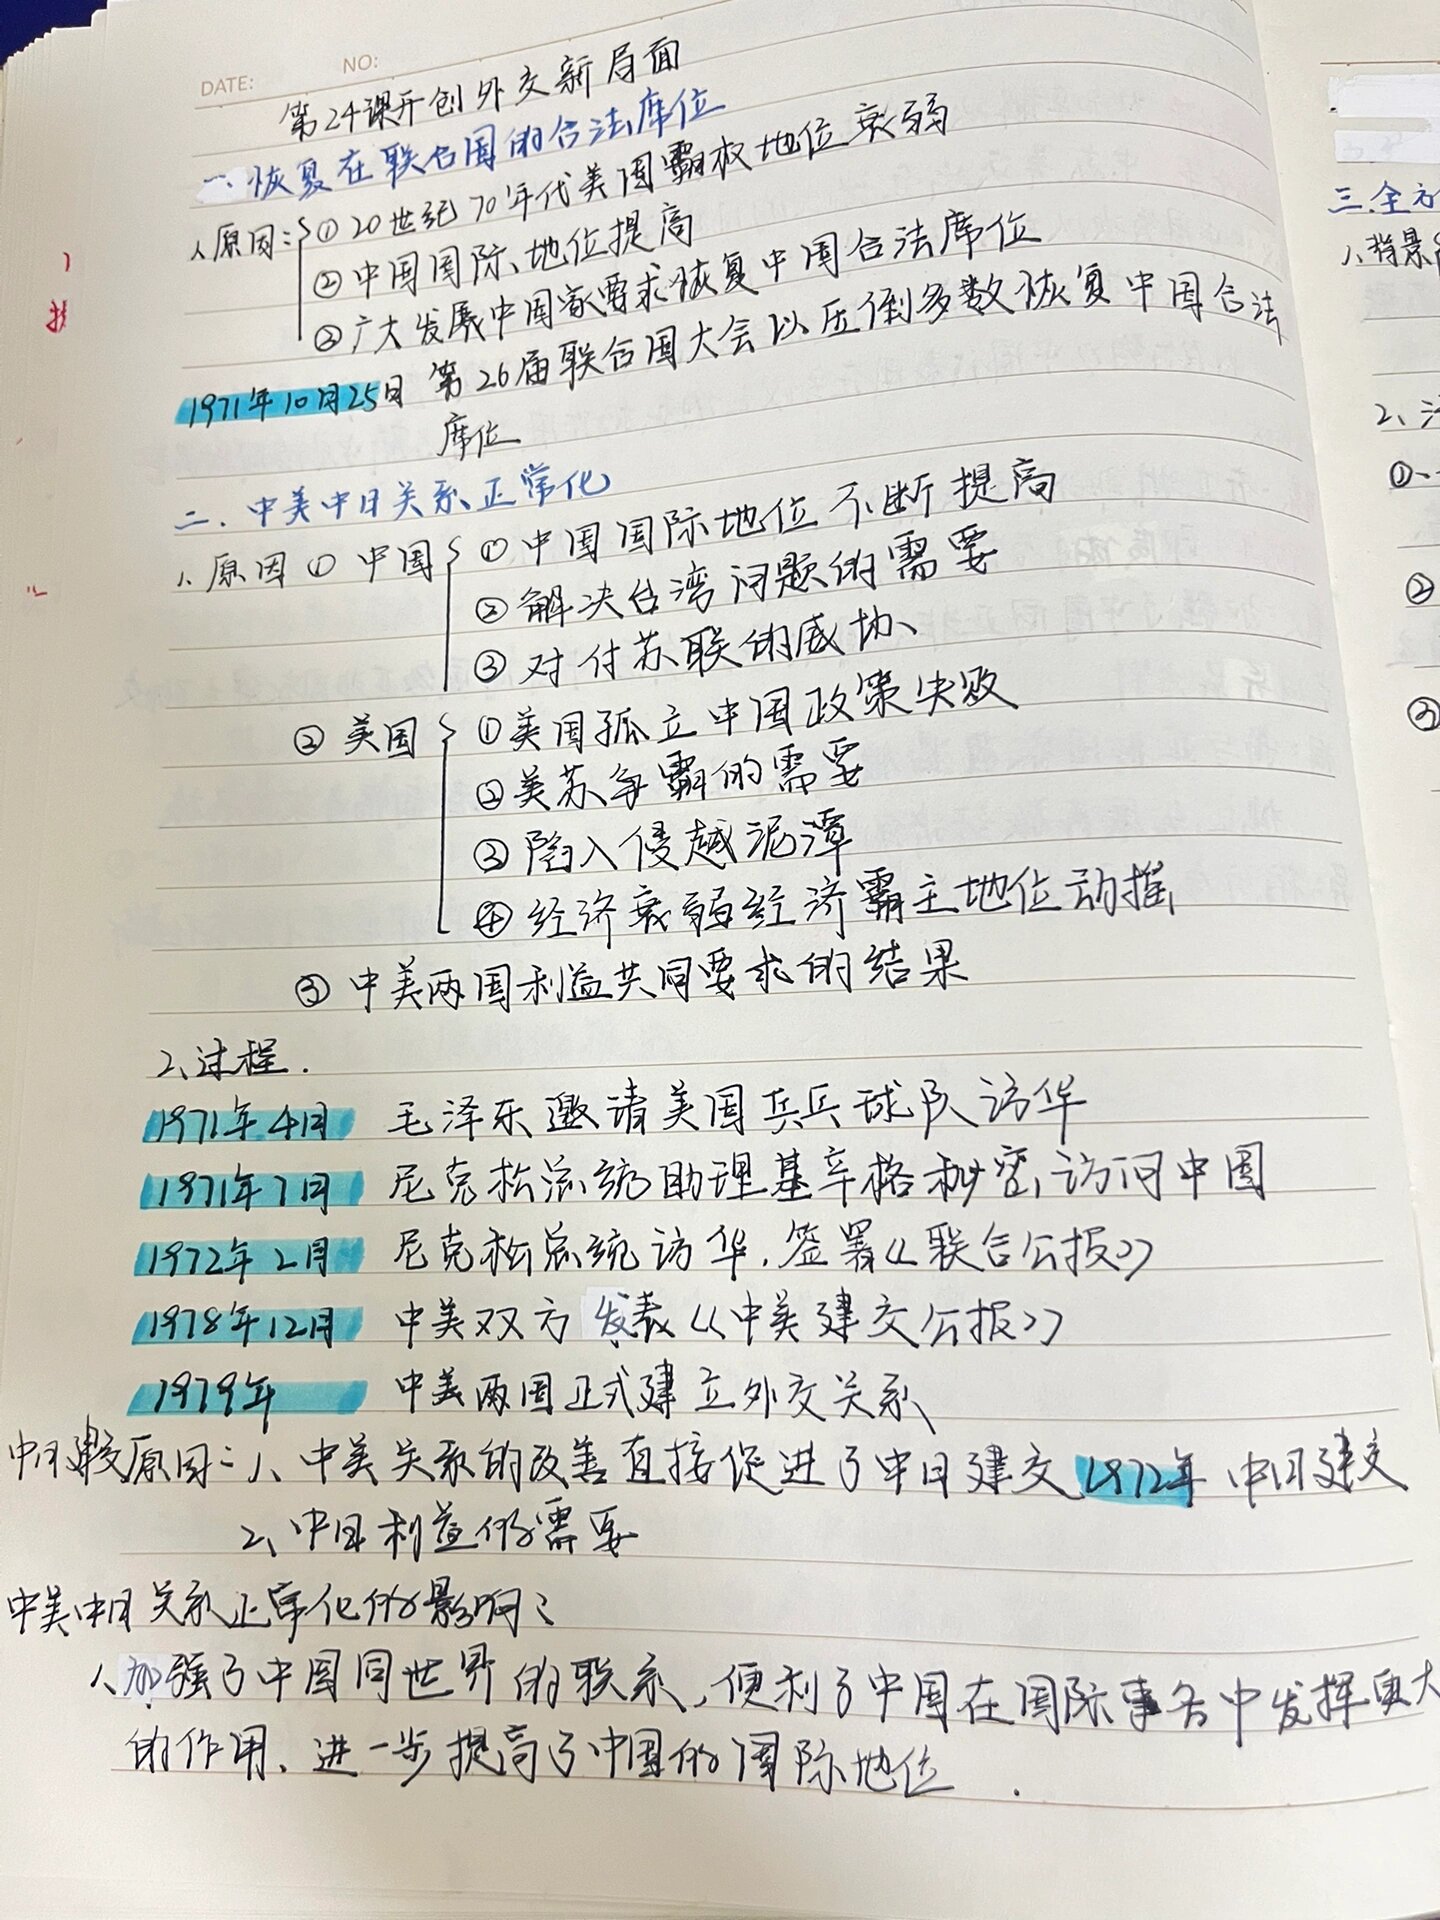 DATE: NO:
第24课开创外交新局面
一.恢复在联合国的合法席位
1、原因:①20世纪70年代美国霸权地位衰弱
②中国国际地位提高
③广大发展中国家要求恢复中国合法席位
1971年10月25日 第26届联合国大会以压倒多数恢复中国合法
席位
二.中美中日关系正常化
1、原因①中国①中国国际地位不断提高
②解决台湾问题的需要
③对付苏联的威协
②美国①美国孤立中国政策失败
②美苏争霸的需要
③陷入侵越泥潭
④经济衰弱经济霸主地位动摇
③中美两国利益共同要求的结果
2、过程.
1971年4月 毛泽东邀请美国乒乓球队访华
1971年7月 尼克松总统助理基辛格秘密访问中国
1972年2月 尼克松总统访华,签署《联合公报》
1978年12月 中美双方发表《中美建交公报》
1979年 中美两国正式建立外交关系
中日建交原因:1、中美关系的改善直接促进了中日建交 1972年 中日建交
2、中日利益的需要
中美中日关系正常化的影响:
1、加强了中国同世界的联系,便利了中国在国际事务中发挥更大
的作用、进一步提高了中国的国际地位.
三.全方
1、背景
2、
①
②
③